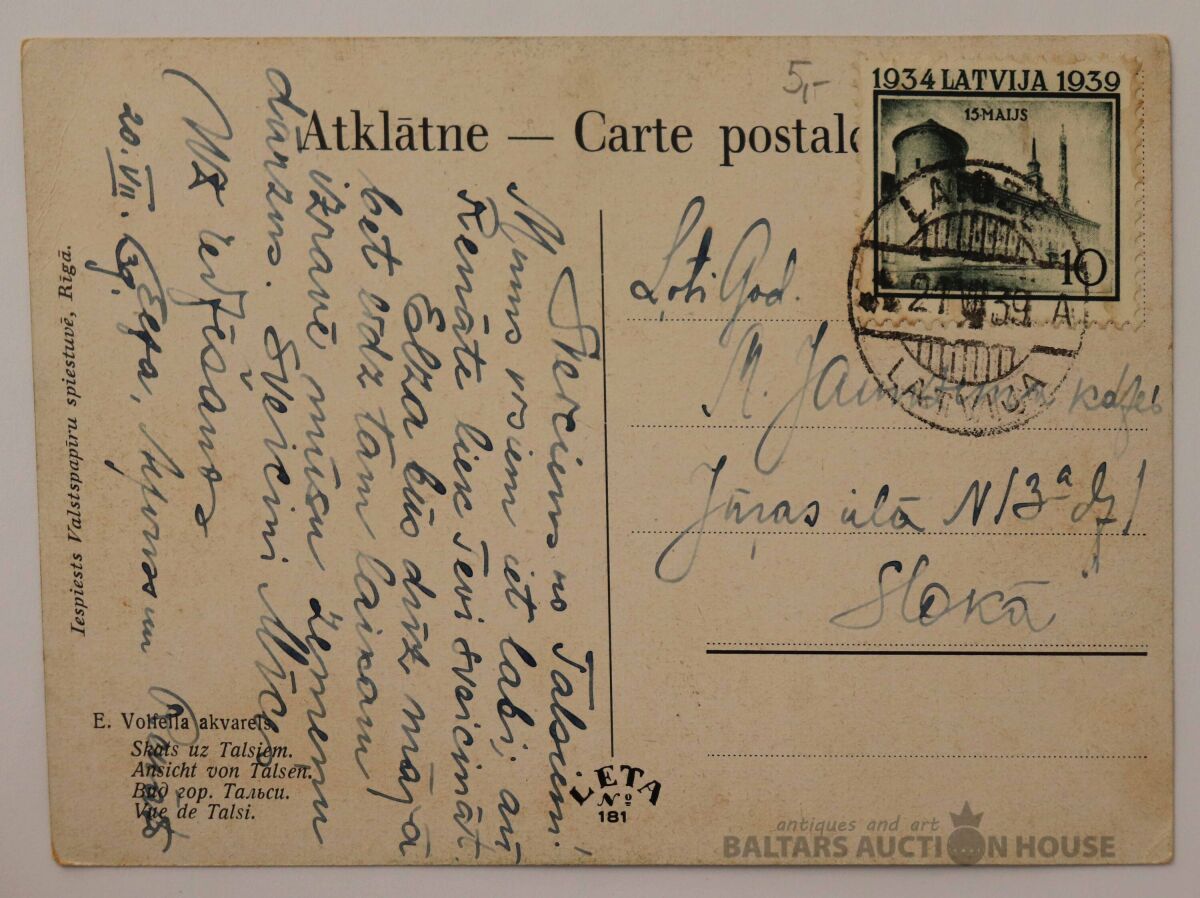 5,-
1934 LATVIJA 1939
15·MAIJS
10
Atklātne — Carte postale
LATVIJA
21 VII 39 A
Ļoti God.
K. Jaunzema kdzei
Jūras ielā N 13ª dz 1
Slokā
Sveiciens no Talsiem!
Mums visiem iet labi, arī
Renāte liek Tevi sveicināt.
Elza būs drīz mājā
bet lūdz tam laikam
izravē mūsu zemeņu
dārzus. Sveicini Mico
Uz redzēšanos
20.VII.39.
Elza,
Iespiests Valstspapīru spiestuvē, Rīgā.
E. Volfeila akvarels.
Skats uz Talsiem.
Ansicht von Talsen.
Вид гор. Тальси.
Vue de Talsi.
LETA
№
181
antiques and art
BALTARS AUCTION HOUSE